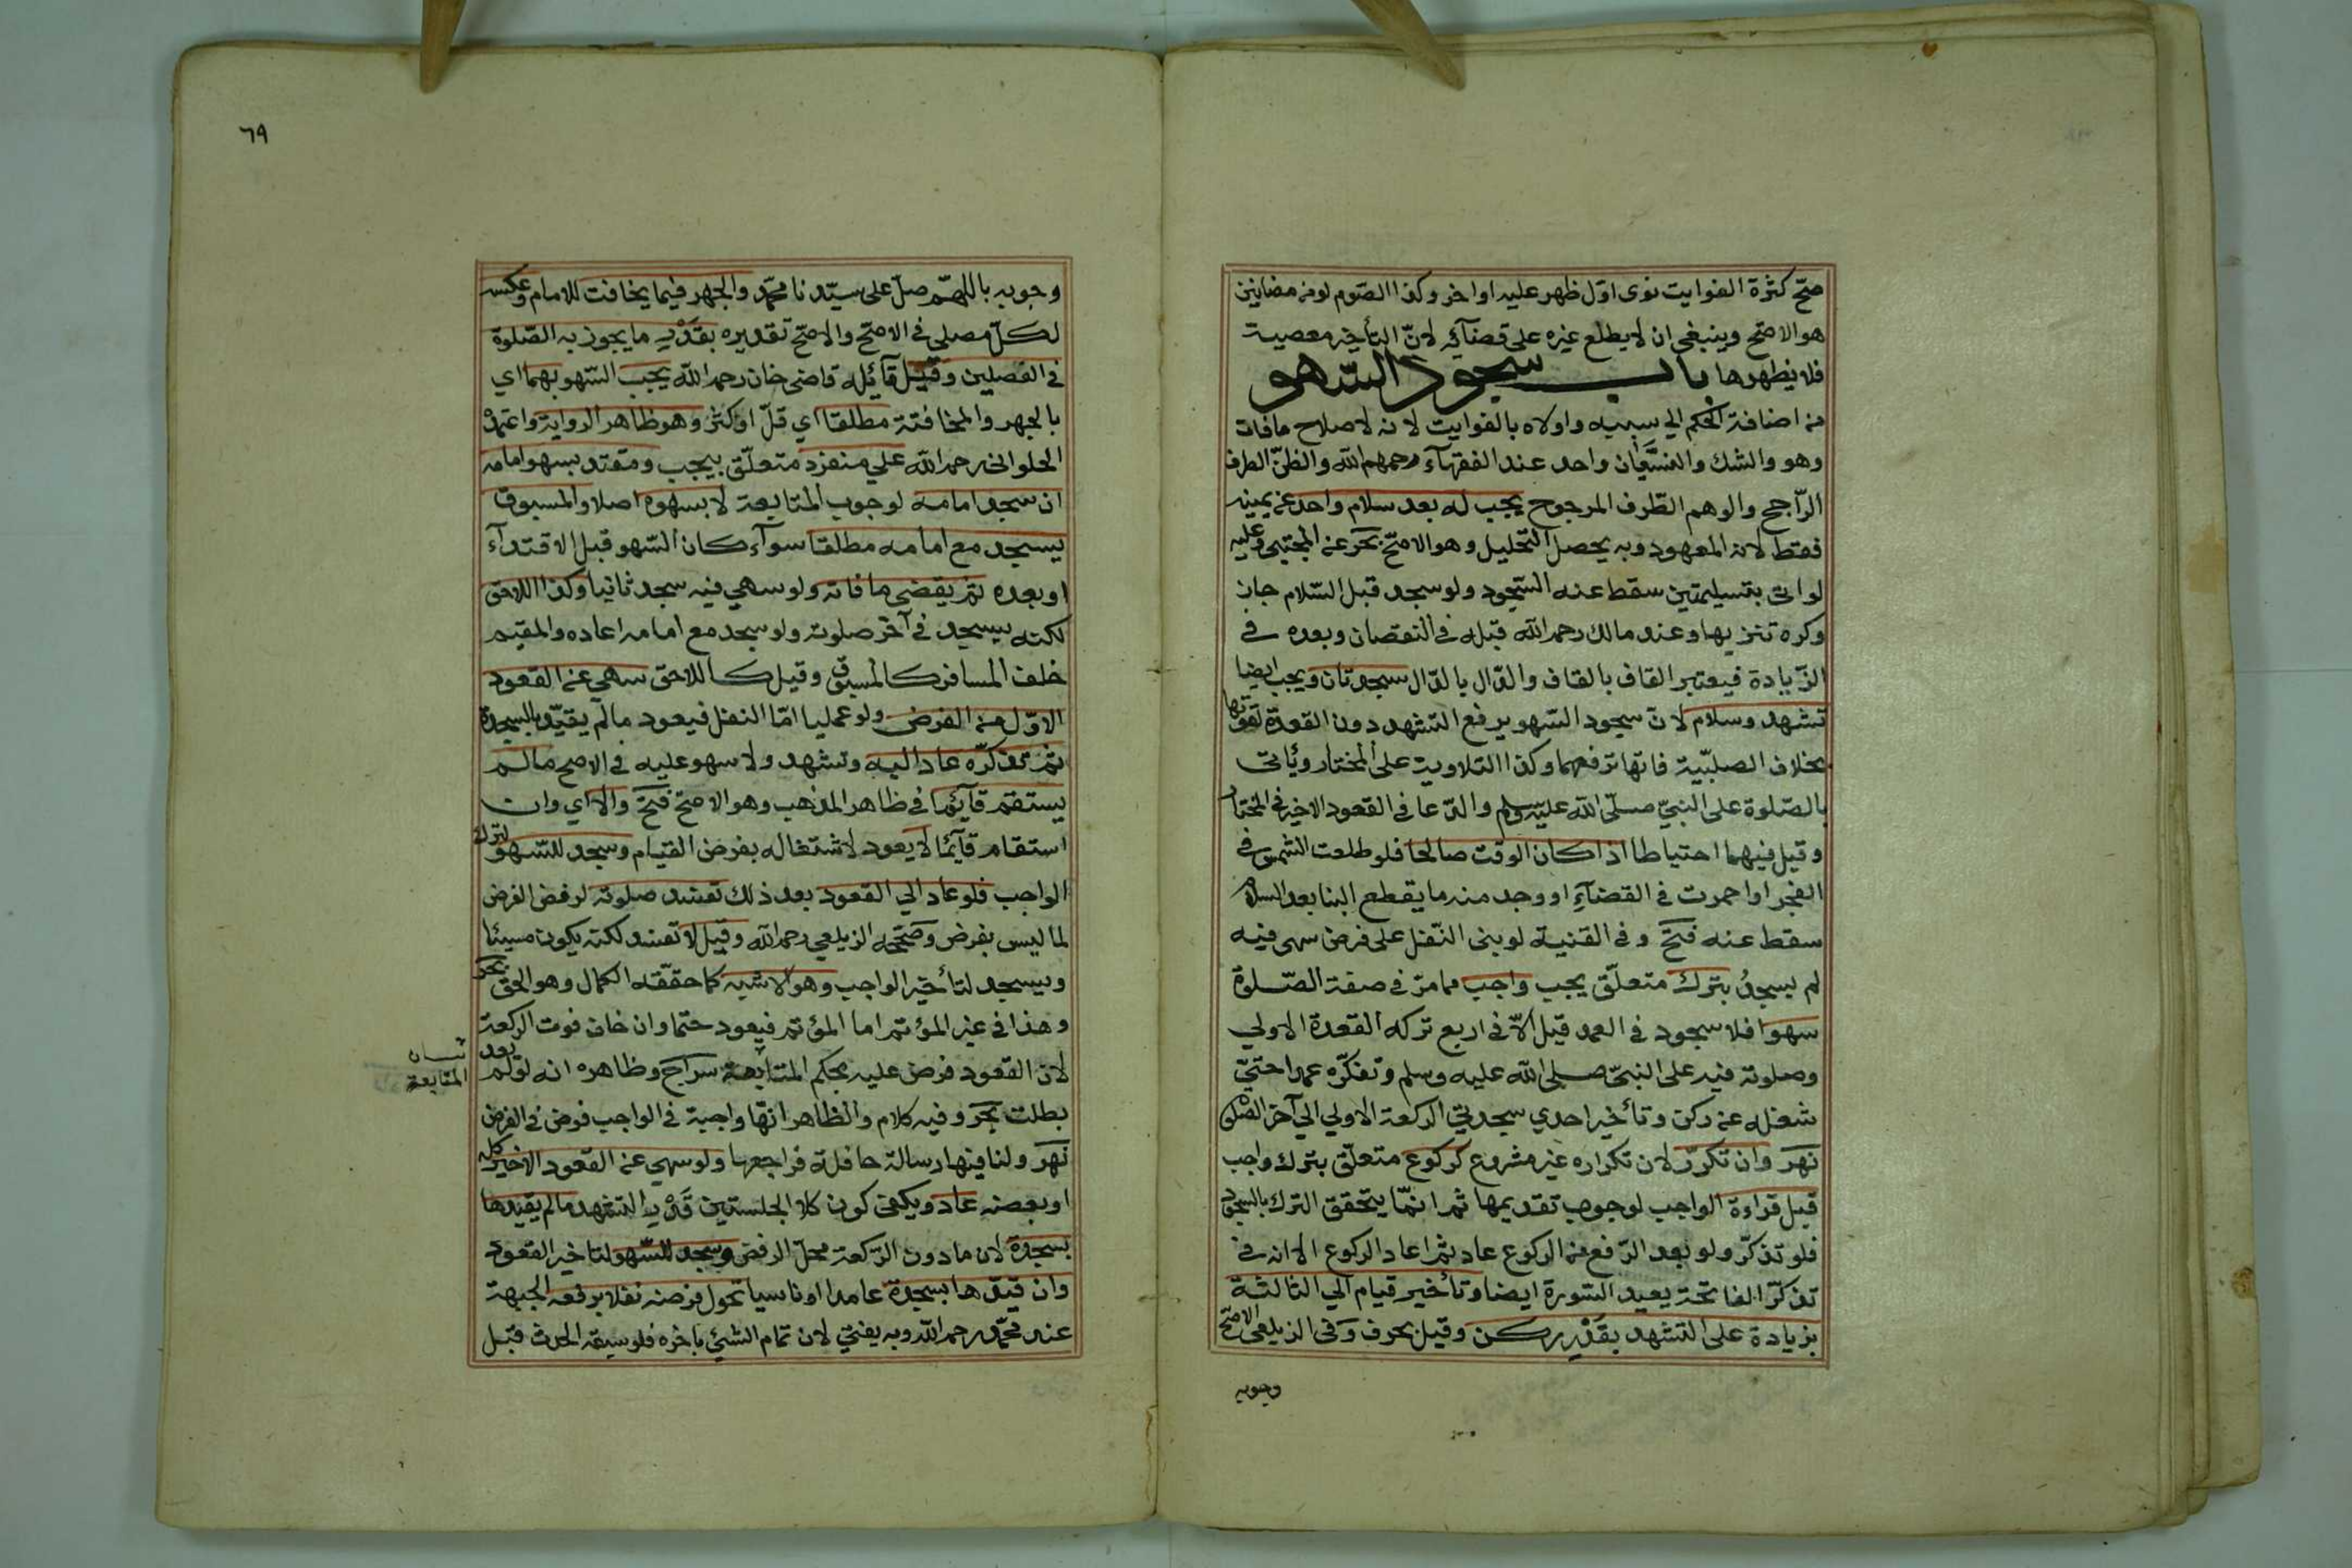 صحّ كثرة الفوايت نوى اوّل ظهر عليه او اخر وكذا الصّوم لو من رمضانين
هو الاصحّ وينبغي ان لا يطلع غيره على قضآئه لانّ التأخير معصية
فلا يظهرها باب سجود السّهو
من اضافة الحكم الى سببه واولاه بالفوايت لانه لاصلاح مافات
وهو والشك والنسيان واحد عند الفقهآء رحمهم الله والظنّ الطرف
الرّاجح والوهم الطّرف المرجوح يجب له بعد سلام واحد عن يمينه
فقط لانه المعهود وبه يحصل التحليل وهو الاصحّ بحر عن المجتبى وعليه
لو اتى بتسليمتين سقط عنه السّجود ولو سجد قبل السّلام جاز
وكره تنزيها وعند مالك رحمه الله قبله في النقصان وبعده في
الزّيادة فيعتبر القاف بالقاف والدّال بالدّال سجدتان ويجب ايضا
تشهد وسلام لانّ سجود السّهو يرفع التشهد دون القعدة لقوتها
بخلاف الصلبيّة فانها ترفعهما وكذا التلاوية على المختار ويأتي
بالصّلوة على النبيّ صلّى الله عليه وسلم والدّعا في القعود الاخير في المختار
وقيل فيهما احتياطا اذا كان الوقت صالحا فلو طلعت الشمس في
الفجر او احمرت في القضآء او وجد منه ما يقطع البنا بعد السلام
سقط عنه فتح وفي القنية لو بنى النّفل على فرض سهى فيه
لم يسجدُ بترك متعلّق يجب واجب مما مرّ في صفة الصّلوة
سهوا فلا سجود في العمد قيل الاّ في اربع تركه القعدة الاولي
وصلوته فيه على النبيّ صلى الله عليه وسلم وتفكّره عمدا حتيّ
شغله عن ركن وتأخير احدي سجدتي الركعة الاولي الي آخر الصّلوة
نهر وان تكررّ لان تكراره غير مشروع كركوع متعلّق بترك واجب
قبل قراءة الواجب لوجوب تقديمها ثم انمّا يتحقق الترك بالسجود
فلو تذكّر ولو بعد الرّفع من الركوع عاد ثم اعاد الركوع الا انه في
تذكرّ الفاتحة يعيد السّورة ايضا وتأخير قيام الي الثالثة
بزيادة على التشهد بقَدْرِ ركن وقيل بحرف وفى الزيلعي الاصحّ
وجوبه
٦٩
وجوبه باللهمّ صلّ على سيّدنا محمّد والجهر فيما يخافت للامام وعكسه
لكلّ مصلى في الاصحّ والاصحّ تقديره بقَدْرِ ما يجوز به الصّلوة
في الفصلين وقيل قآئله قاضى خان رحمه الله يجب السّهو بهما اي
بالجهر والمخافتة مطلقا اي قلّ او كثر وهو ظاهر الرواية واعتمدْ
الحلوانى رحمه الله علي منفرد متعلّق بيجب ومقتد بسهو امامه
ان سجد امامه لوجوب المتابعة لا بسهوه اصلا والمسبوق
يسجد مع امامه مطلقا سوآء كان السّهو قبل الاقتدآء
او بعده ثم يقضي ما فاته ولو سهي فيه سجد ثانيا وكذا اللاحق
لكنه يسجد في آخر صلوته ولو سجد مع امامه اعاده والمقيم
خلف المسافر كالمسبوق وقيل كاللاحق سهي عن القعود
الاوّل من الفرض ولو عمليا امّا النفل فيعود ما لم يقيّد بالسجدة
ثم تذكرّه عاد اليه وتشهد ولا سهو عليه في الاصح مالم
يستقم قآئما في ظاهر المذهب وهو الاصحّ فتح والاّ اي وان
استقام قآئما لا يعود لاشتغاله بفرض القيام وسجد للسّهو لترك
الواجب فلو عاد الي القعود بعد ذلك تفسد صلوته لرفض الفرض
لما ليس بفرض وصحّحه الزيلعي رحمه الله وقيل لا تفسد لكنه يكون مسيئا
ويسجد لتأخير الواجب وهو الاشبه كما حقّقه الكمال وهو الحق بحر
وهذا في غير المؤتم اما المؤتم فيعود حتما وان خاف فوت الركعة
لان القعود فرض عليه بحكم المتابعة سراج وظاهره انه لو لم يعد
بطلت بحر وفيه كلام والظاهر انّها واجبة في الواجب فرض في الفرض
نهر ولنا فيها رسالة حافلة فراجعها ولو سهي عن القعود الاخير كله
او بعضه عاد ويكفي كون كلا الجلستين قَدْرَ التشهد ما لم يقيدها
بسجدة لان ما دون الرّكعة محلّ الرفض وسجد للسّهو لتاخير القعود
وان قيّدها بسجدة عامدا او ناسيا تحول فرضه نفلا برفعه الجبهة
عند محمّد رحمه الله وبه يفتيّ لان تمام الشئ باخره فلو سبقه الحدث قبل
المتابعة